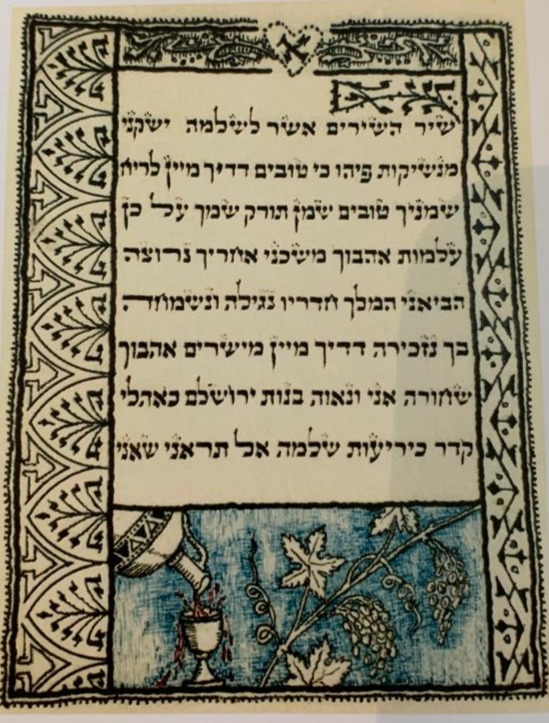 א
שיר השירים אשר לשלמה ישקני
מנשיקות פיהו כי טובים דדיך מיין לריח
שמניך טובים שמן תורק שמך על כן
עלמות אהבוך משכני אחריך נרוצה
הביאני המלך חדריו נגילה ונשמחה
בך נזכירה דדיך מיין מישרים אהבוך
שחורה אני ונאוה בנות ירושלם כאהלי
קדר כיריעות שלמה אל תראני שאני